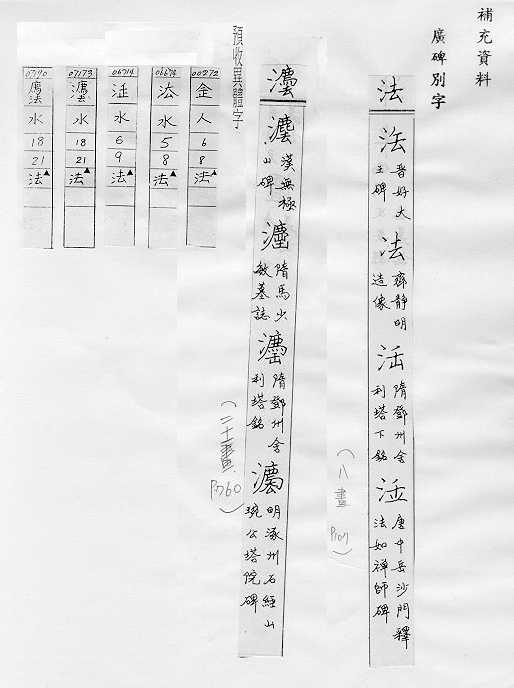 補充資料
廣碑別字
法
晉好大
王碑
法
齊靜明
造像
隋鄧州舍
利塔下銘
唐中岳沙門釋
法如禪師碑
(八畫 P107)
灋
漢無極
山碑
隋馬少
敏墓誌
隋鄧州舍
利塔銘
明涿州石經山
琬公塔院碑
(二十畫 P760)
預收異體字
00272
仚
人
6
8
法▲
06674
水
5
8
法▲
06714
水
6
9
法▲
07173
水
18
21
法▲
07190
水
18
21
法▲